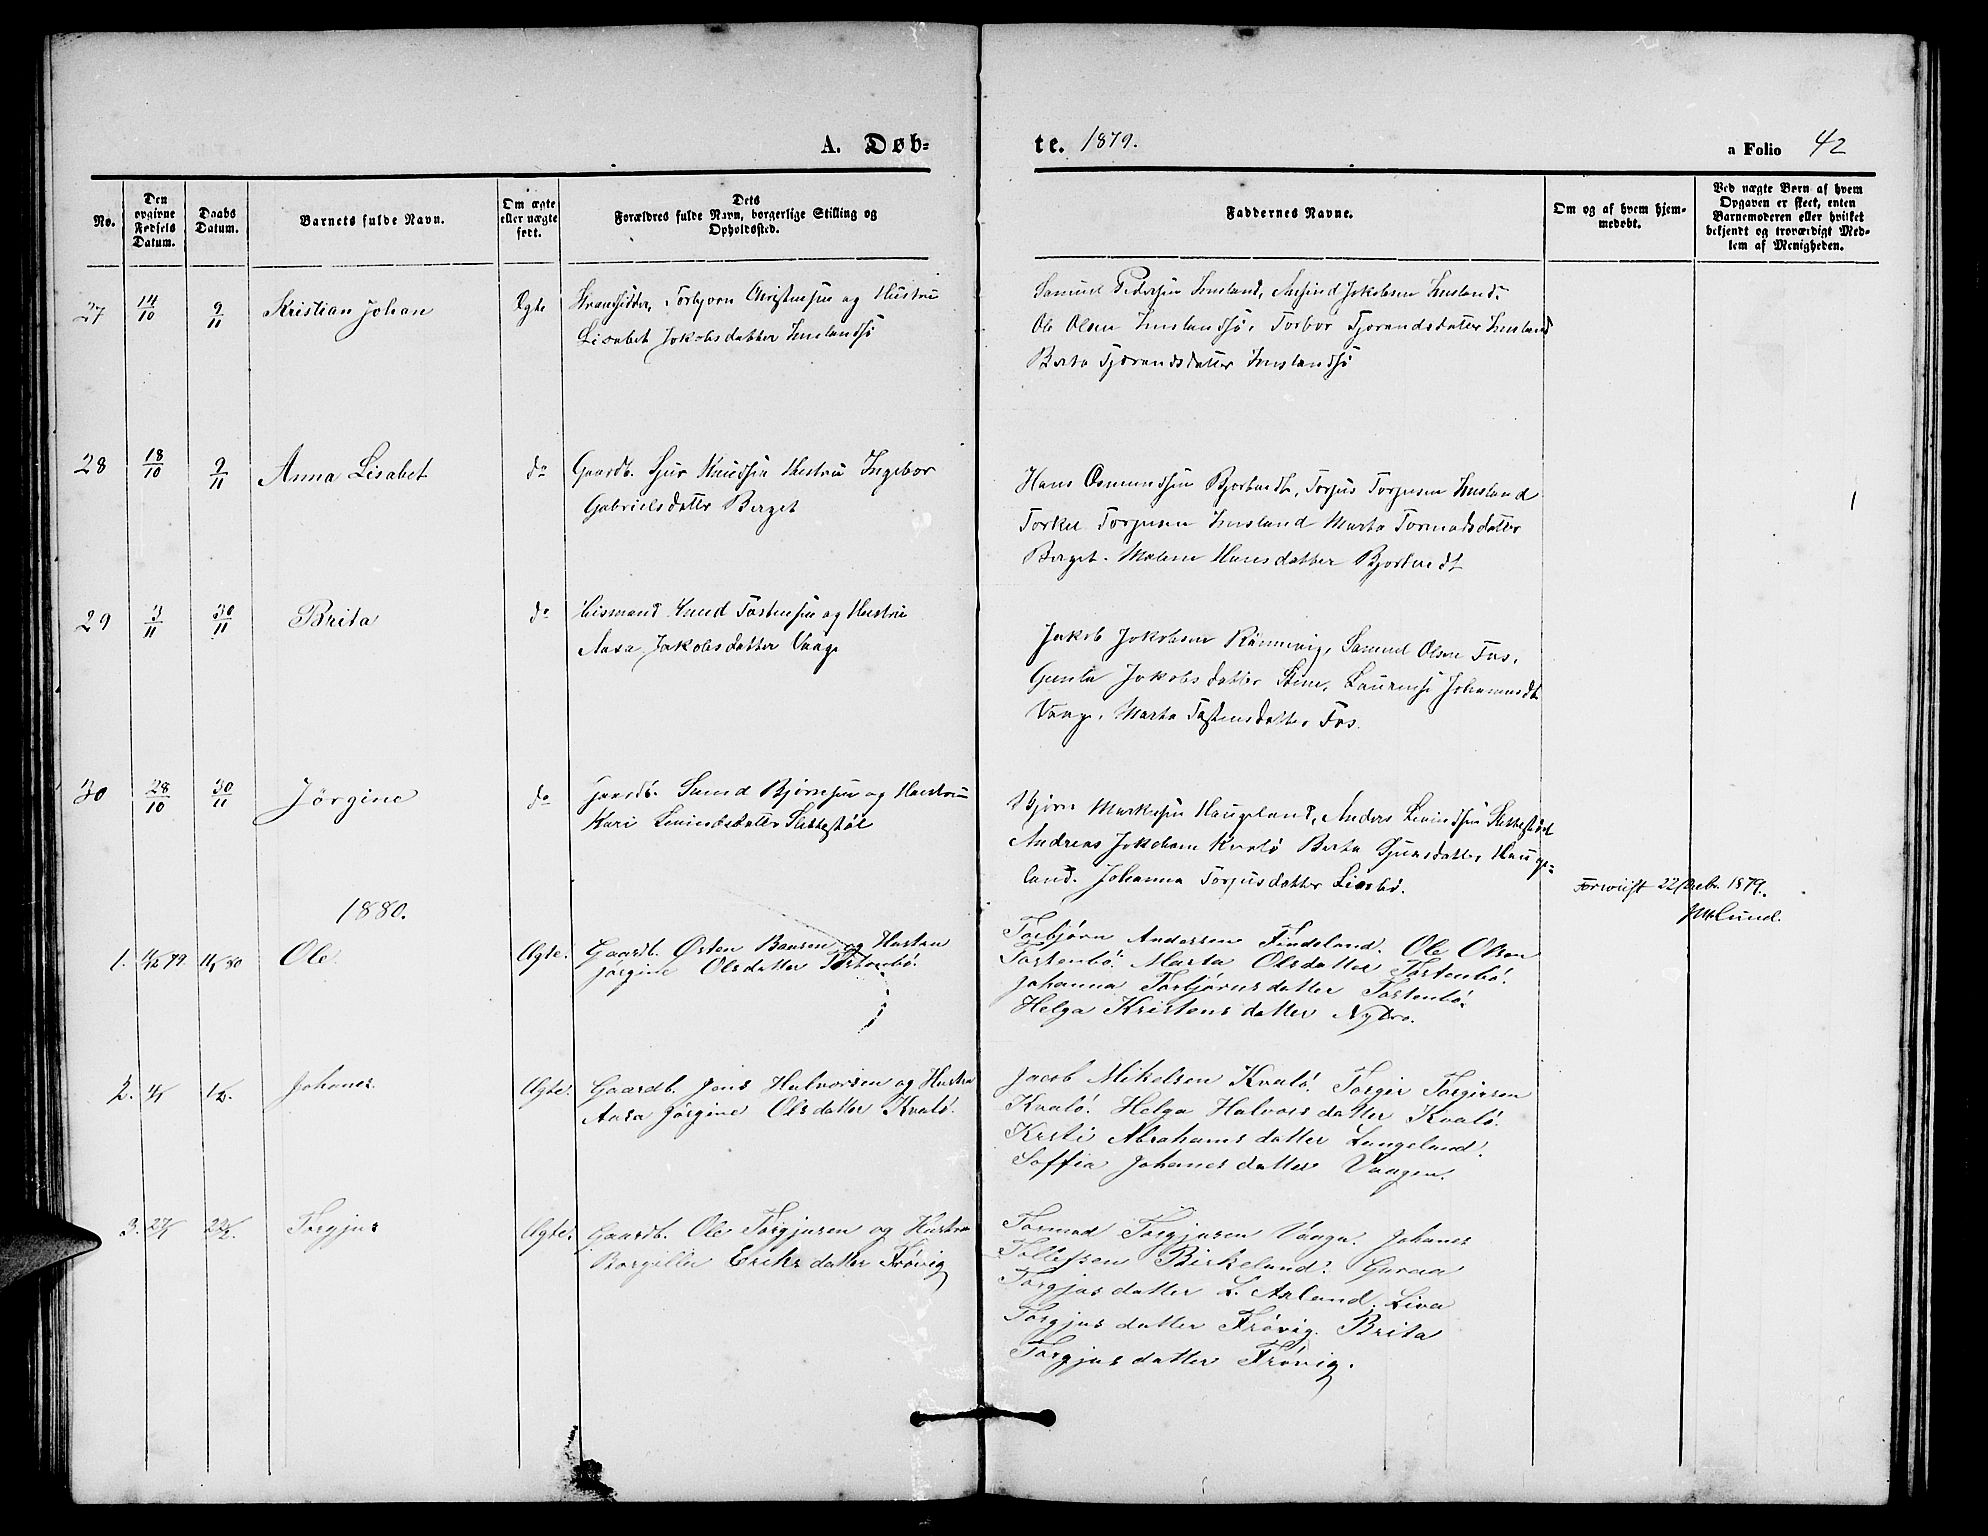 A. Døb-
te. 1879.
a Folio 42
No.
Den
opgivne
Fødsels
Datum.
Daabs
Datum.
Barnets fulde Navn.
Om ægte
eller uægte
født.
Dets
Forældres fulde Navn, borgerlige Stilling og
Opholdssted.
Faddernes Navne.
Om og af hvem hjem-
medøbt.
Ved uægte Børn af hvem
Opgaven er skeet, enten
Barnemoderen eller hvilket
bekjendt og troværdigt Med-
lem af Menigheden.
27 14/10 9/11 Kristian Johan Ægte Strandsidder, Torbjørn Christensen og Hustru
Lisabet Jakobsdatter Imslandsjø
Samuel Pedersen Imsland, Jakobsen Imsland.
Ole Olsen Imslandsjø, Torbor Tjerandsdatter Imsland
Berta Tjerandsdatter Imslandsjø
28 18/10 9/11 Anna Lisabet do Gaardb. Sjur Knudsen Hustru Ingebor
Gabrielsdatter Berget
Hans Osmundsen Torjus Torjusen Imsland
Torkel Torjusen Imsland Marta Tormodsdatter
Berget. Malene Hansdatter
29 3/11 30/11 Brita do Huismand Knud Tostensen og Hustru
Aasa Jakobsdatter Vaage
Jakob Jakobsen Rønnevig, Samuel Olsen Fos,
Gunla Jakobsdatter Laurense Johannesdt
Vaage, Marta Tostensdatter Fos.
30 28/10 30/11 Jørgine do Gaardb. Bjørnsen og Hustru
Kari Slettestøl
Bjørn Markusen Haugeland, Anders Slettestøl
Andreas Kvalø Berta Sjursdatter Hauge-
land. Johanna Torjusdatter
Forevist 22/Decb. 1879.
Lund.
1880.
1. 11/12 79. 11/1 80 Ole. Ægte. Gaardb. Østen Baarsen og Hustru
Jørgine Olsdatter Tostenbø.
Torbjørn Andersen Findeland. Ole Olsen
Tostenbø. Marta Olsdatter Tostenbø.
Johanna Torbjørnsdatter Tostenbø.
Helga Kristensdatter Nybro.
2. 4/1 1/2. Johanes. Ægte. Gaardb. Jens Halvorsen og Hustru
Aasa Jørgine Olsdatter Kvalø.
Jacob Mikelsen Kvalø. Torger Torgersen
Kvalø. Helga Halvorsdatter Kvalø.
Kristi Abrahamsdatter Langeland.
Soffia Johanesdatter Vaagen.
3. 27/1 22/2. Torgjus Ægte. Gaardb. Ole Torgjusen og Hustru
Borgilla Eriksdatter Frøvig
Tormod Torgjusen Vaage. Johanes
Tollefsen Birkeland. Guroa
Torgjusdatter L. Aarland. Liva
Torgjusdatter Frøvig. Brita
Torgjusdatter Frøvig.